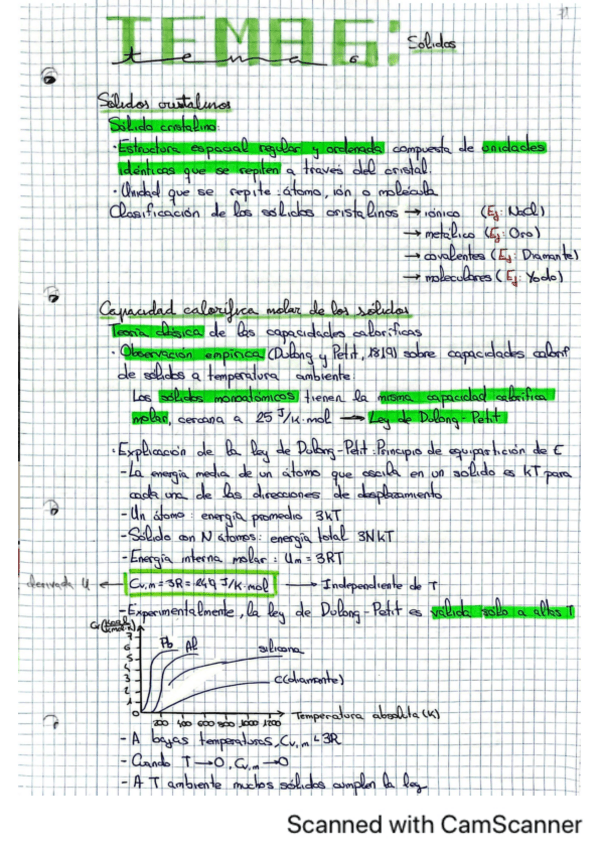 TEMA 6:
tema 6
Sólidos
Sólidos cristalinos
Sólido cristalino:
· Estructura espacial regular y ordenada compuesta de unidades
idénticas que se repiten a través del cristal.
· Unidad que se repite: átomo, ión o molécula
Clasificación de los sólidos cristalinos → iónico (Ej: NaCl)
→ metálico (Ej: Oro)
→ covalentes (Ej: Diamante)
→ moleculares (Ej: Yodo)
Capacidad calorífica molar de los sólidos
Teoría clásica de las capacidades caloríficas
· Observación empírica (Dulong y Petit, 1819) sobre capacidades calorif
de sólidos a temperatura ambiente:
Los sólidos monoatómicos tienen la misma capacidad calorífica
molar, cercana a 25 J/K·mol → Ley de Dulong-Petit
· Explicación de la ley de Dulong-Petit: Principio de equipartición de E
- La energía media de un átomo que oscila en un sólido es kT para
cada una de las direcciones de desplazamiento
- Un átomo: energía promedio 3kT
- Sólido con N átomos: energía total 3NkT
- Energía interna molar: Um = 3RT
derivada U ← Cv,m = 3R = 24'9 J/K·mol → Independiente de T
- Experimentalmente, la ley de Dulong-Petit es válida solo a altas T
7
6
5
4
3
2
1
0
Pb Al silicona
C(diamante)
200 400 600 800 1000 1200 Temperatura absoluta (K)
- A bajas temperaturas, Cv,m < 3R
- Cuando T → 0, Cv,m → 0
- A T ambiente muchos sólidos cumplen la ley
Scanned with CamScanner